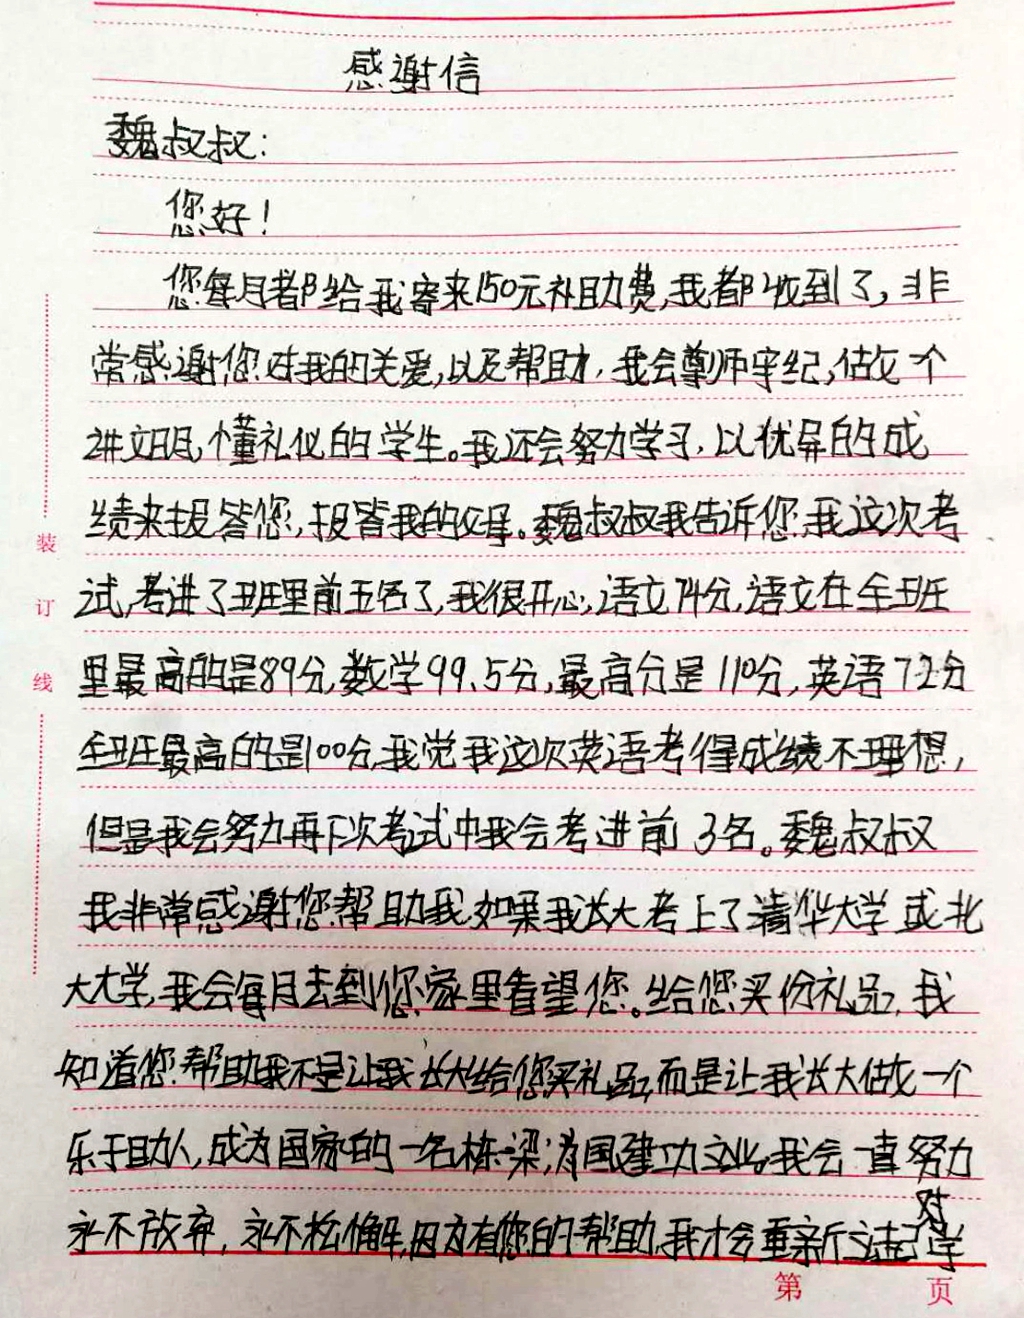 感谢信
魏叔叔:
您好!
您每月都给我寄来150元补助费,我都收到了,非
常感谢您对我的关爱,以及帮助,我会尊师守纪,做一个
讲文明,懂礼仪的学生。我还会努力学习,以优异的成
绩来报答您,报答我的父母。魏叔叔我告诉您,我这次考
试,考进了班里前五名了,我很开心,语文74分,语文在全班
里最高的是89分,数学99.5分,最高分是110分,英语72分
全班最高的是100分,我觉我这次英语考得成绩不理想,
但是我会努力再下次考试中我会考进前3名。魏叔叔
我非常感谢您帮助我,如果我长大考上了清华大学或北
大大学,我会每月去到您家里看望您。给您买份礼品,我
知道您帮助我不是让我长大给您买礼品,而是让我长大做一个
乐于助人,成为国家的一名栋梁,为国建功立业。我会一直努力
永不放弃,永不松懈,因为有您的帮助,我才会重新立起对学
装
订
线
第 页